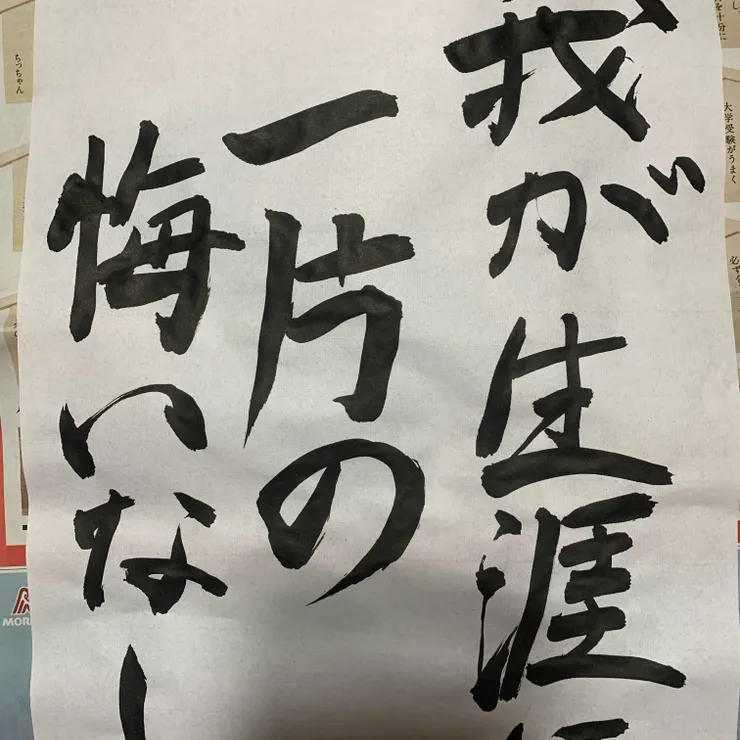 し、
を十分に
大学受験がうまく
我が生涯に
一片の
悔いなし
ちっちゃん
MOR